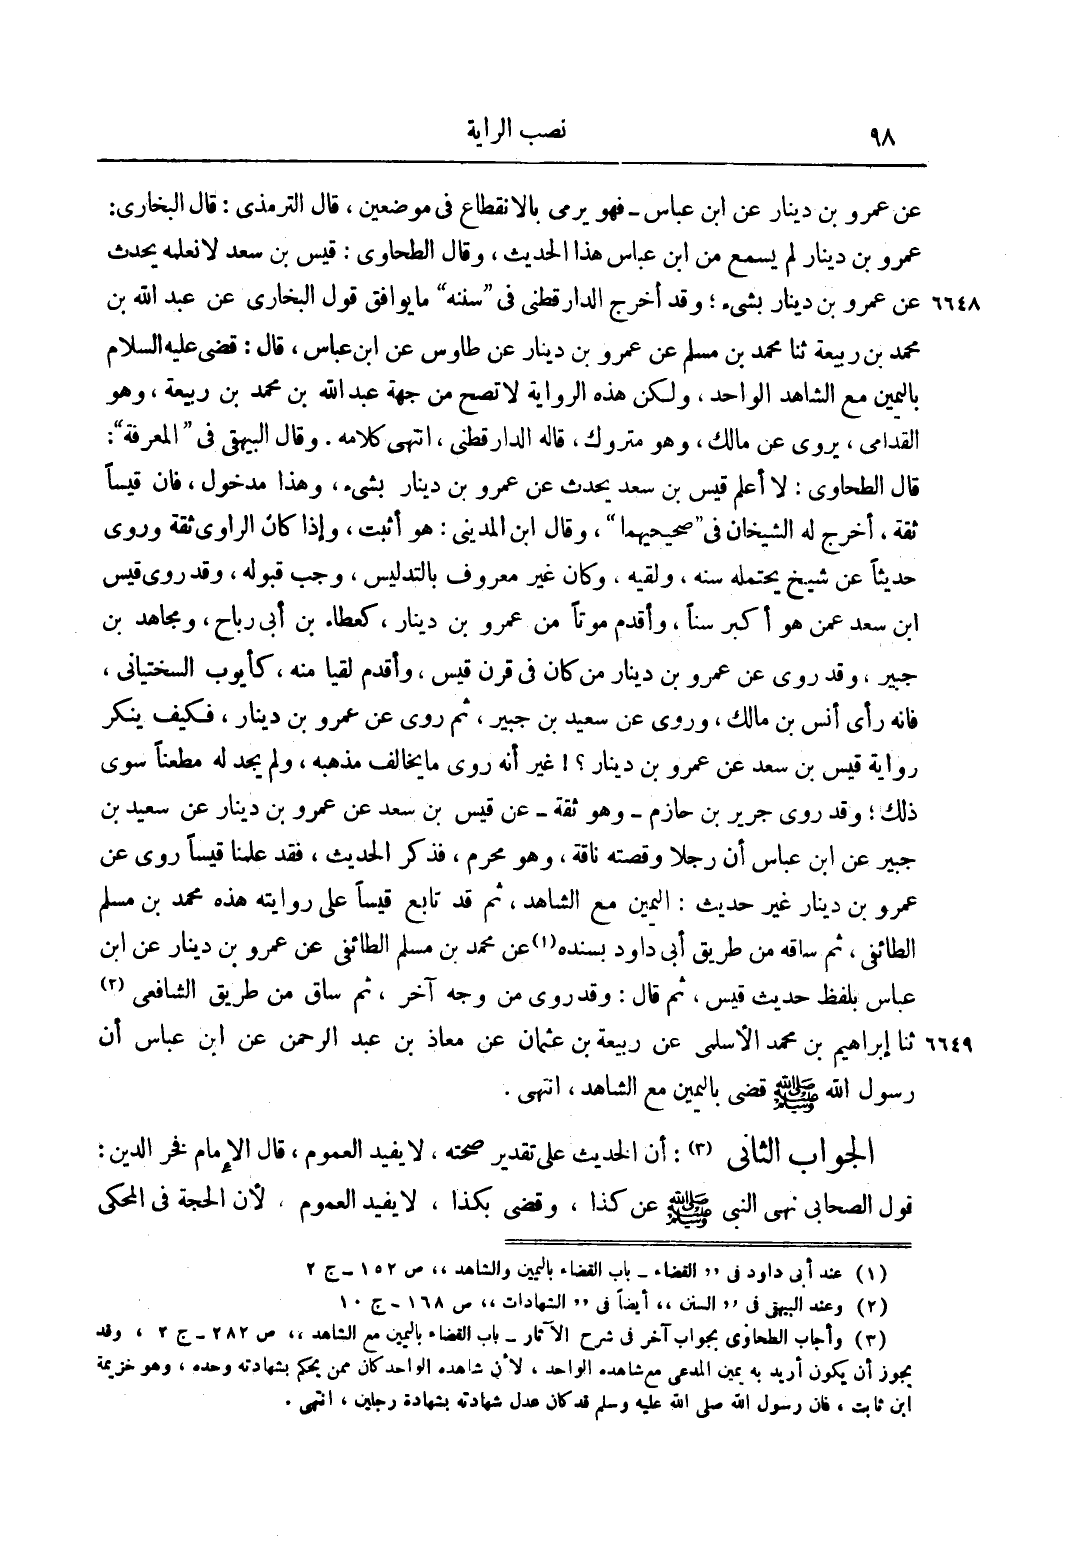 ٩٨ نصب الراية
عن عمرو بن دينار عن ابن عباس ـ فهو يرمى بالانقطاع فى موضعين ، قال الترمذى : قال البخارى :
عمرو بن دينار لم يسمع من ابن عباس هذا الحديث ، وقال الطحاوى : قيس بن سعد لا نعلمه يحدث
٦٦٤٨ عن عمرو بن دينار بشىء ؛ وقد أخرج الدارقطنى فى "سننه" مايوافق قول البخارى عن عبد الله بن
محمد بن ربيعة ثنا محمد بن مسلم عن عمرو بن دينار عن طاوس عن ابن عباس ، قال : قضى عليه السلام
باليمين مع الشاهد الواحد ، ولكن هذه الرواية لا تصح من جهة عبد الله بن محمد بن ربيعة ، وهو
القدامى ، يروى عن مالك ، وهو متروك ، قاله الدارقطنى ، انتهى كلامه . وقال البيهقى فى "المعرفة" :
قال الطحاوى : لا أعلم قيس بن سعد يحدث عن عمرو بن دينار بشىء ، وهذا مدخول ، فان قيساً
ثقة ، أخرج له الشيخان فى "صحيحيهما" ، وقال ابن المدينى : هو أثبت ، وإذا كان الراوى ثقة وروى
حديثاً عن شيخ يحتمله سنه ، ولقيه ، وكان غير معروف بالتدليس ، وجب قبوله ، وقد روى قيس
ابن سعد عمن هو أكبر سناً ، وأقدم موتاً من عمرو بن دينار ، كعطاء بن أبى رباح ، ومجاهد بن
جبير ، وقد روى عن عمرو بن دينار من كان فى قرن قيس ، وأقدم لقيا منه ، كأيوب السختيانى ،
فانه رأى أنس بن مالك ، وروى عن سعيد بن جبير ، ثم روى عن عمرو بن دينار ، فكيف ينكر
رواية قيس بن سعد عن عمرو بن دينار ؟ ! غير أنه روى مايخالف مذهبه ، ولم يجد له مطعناً سوى
ذلك ؛ وقد روى جرير بن حازم ـ وهو ثقة ـ عن قيس بن سعد عن عمرو بن دينار عن سعيد بن
جبير عن ابن عباس أن رجلا وقصته ناقة ، وهو محرم ، فذكر الحديث ، فقد علمنا قيساً روى عن
عمرو بن دينار غير حديث : اليمين مع الشاهد ، ثم قد تابع قيساً على روايته هذه محمد بن مسلم
الطائفى ، ثم ساقه من طريق أبى داود بسنده (١) عن محمد بن مسلم الطائفى عن عمرو بن دينار عن ابن
عباس بلفظ حديث قيس ، ثم قال : وقد روى من وجه آخر ، ثم ساق من طريق الشافعى (٢)
٦٦٤٩ ثنا إبراهيم بن محمد الأسلمى عن ربيعة بن عثمان عن معاذ بن عبد الرحمن عن ابن عباس أن
رسول الله ﷺ قضى باليمين مع الشاهد ، انتهى .
الجواب الثانى (٣) : أن الحديث على تقدير صحته ، لا يفيد العموم ، قال الإمام فخر الدين :
قول الصحابى نهى النبى ﷺ عن كذا ، وقضى بكذا ، لا يفيد العموم ، لأن الحجة فى المحكى
(١) عند أبى داود فى ,, القضاء ـ باب القضاء باليمين والشاهد ،، ص ١٥٢ ـ ج ٢
(٢) وعند البيهقى فى ,, السنن ،، أيضاً فى ,, الشهادات ،، ص ١٦٨ ـ ج ١٠
(٣) وأجاب الطحاوى بجواب آخر فى شرح الآثار ـ باب القضاء باليمين مع الشاهد ،، ص ٢٨٢ ـ ج ٢ ، وقد
يجوز أن يكون أريد به يمين المدعى مع شاهده الواحد ، لأن شاهده الواحد كان ممن يحكم بشهادته وحده ، وهو خزيمة
ابن ثابت ، فان رسول الله صلى الله عليه وسلم قد كان عدل شهادته بشهادة رجلين ، انتهى .